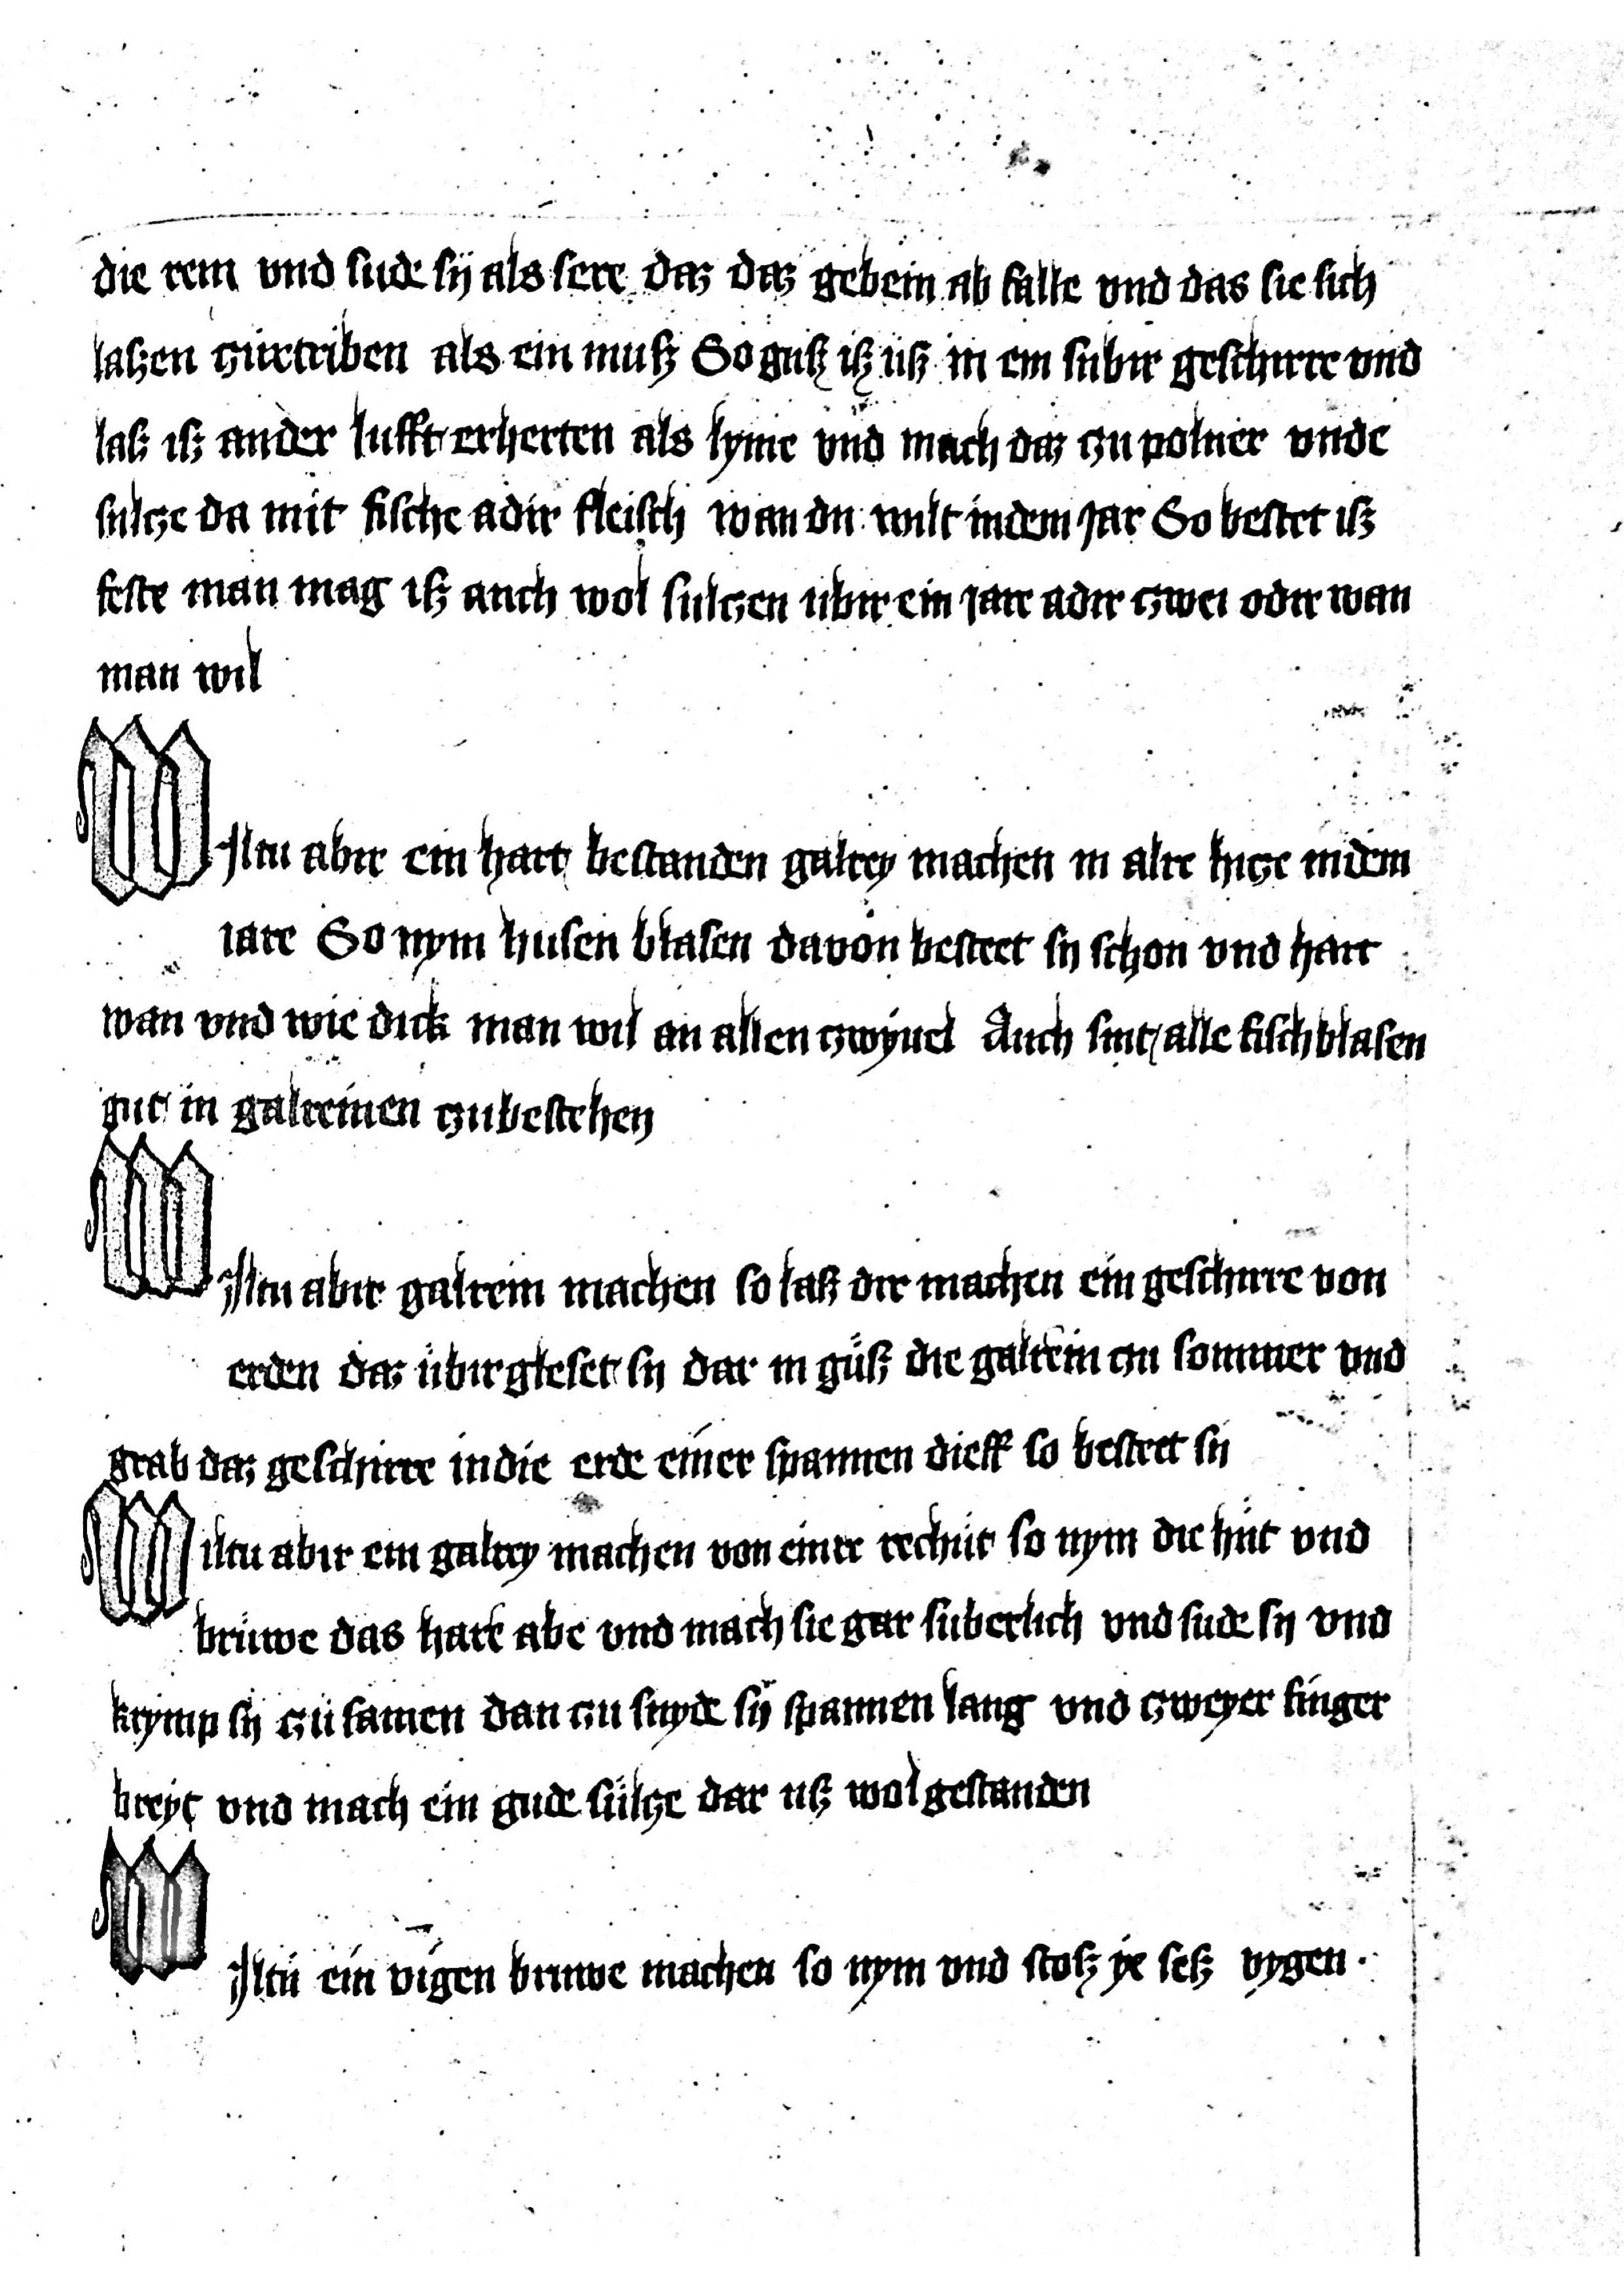 die rein vnd sude sÿ als sere daz daz gebein ab falle vnd das sie sich
laßen zürtriben als ein muß So guß iß üß in ein subir geschirre vnd
laß iß ander lufft erherten als lyme vnd mach daz zu poluer vnde
sulze da mit fische adir fleisch wan du wilt indem jar So bestet iß
feste man mag iß auch wol sulzen ubir ein jare adir zwei odir wan
man wil
Wiltu abir ein hart bestanden galrey machen in alre hitze indem
iare So nym husen blasen davon besteet sy schon vnd hart
wan vnd wie dick man wil an allen zwyuel Auch sint alle fischblasen
gut in galreinen zubestehen
Wiltu abir galrein machen so laß dir machen ein geschirre von
erden daz übirgleset sy dar in güß die galrein zu sommer vnd
grab daz geschirre in die erde einer spannen dieff so besteet sy
Wiltu abir ein galrey machen von einer rechüt so nym die hüt vnd
brüwe das hare abe vnd mach sie gar suberlich vnd sude sy vnd
krymp sy zü samen dan zu snyde sÿ spannen lang vnd zweyer finger
breyt vnd mach ein gude sülze dar uß wol gestanden
Wiltü ein vigen bruwe machen so nym vnd stoß ye seß vygen ·